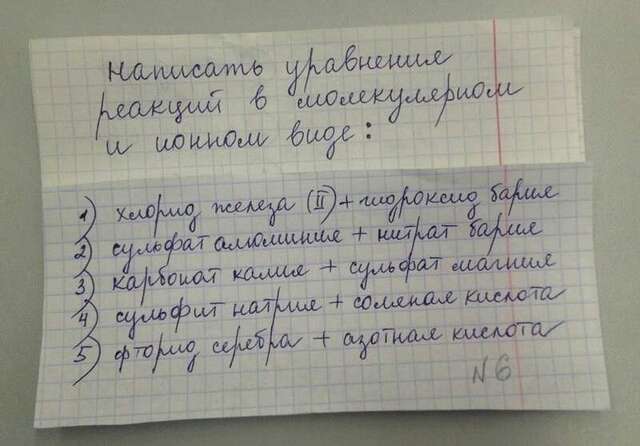 Написать уравнения
реакций в молекулярном
и ионном виде:
1) хлорид железа (II) + гидроксид бария
2) сульфат алюминия + нитрат бария
3) карбонат калия + сульфат магния
4) сульфит натрия + соляная кислота
5) фторид серебра + азотная кислота
N6